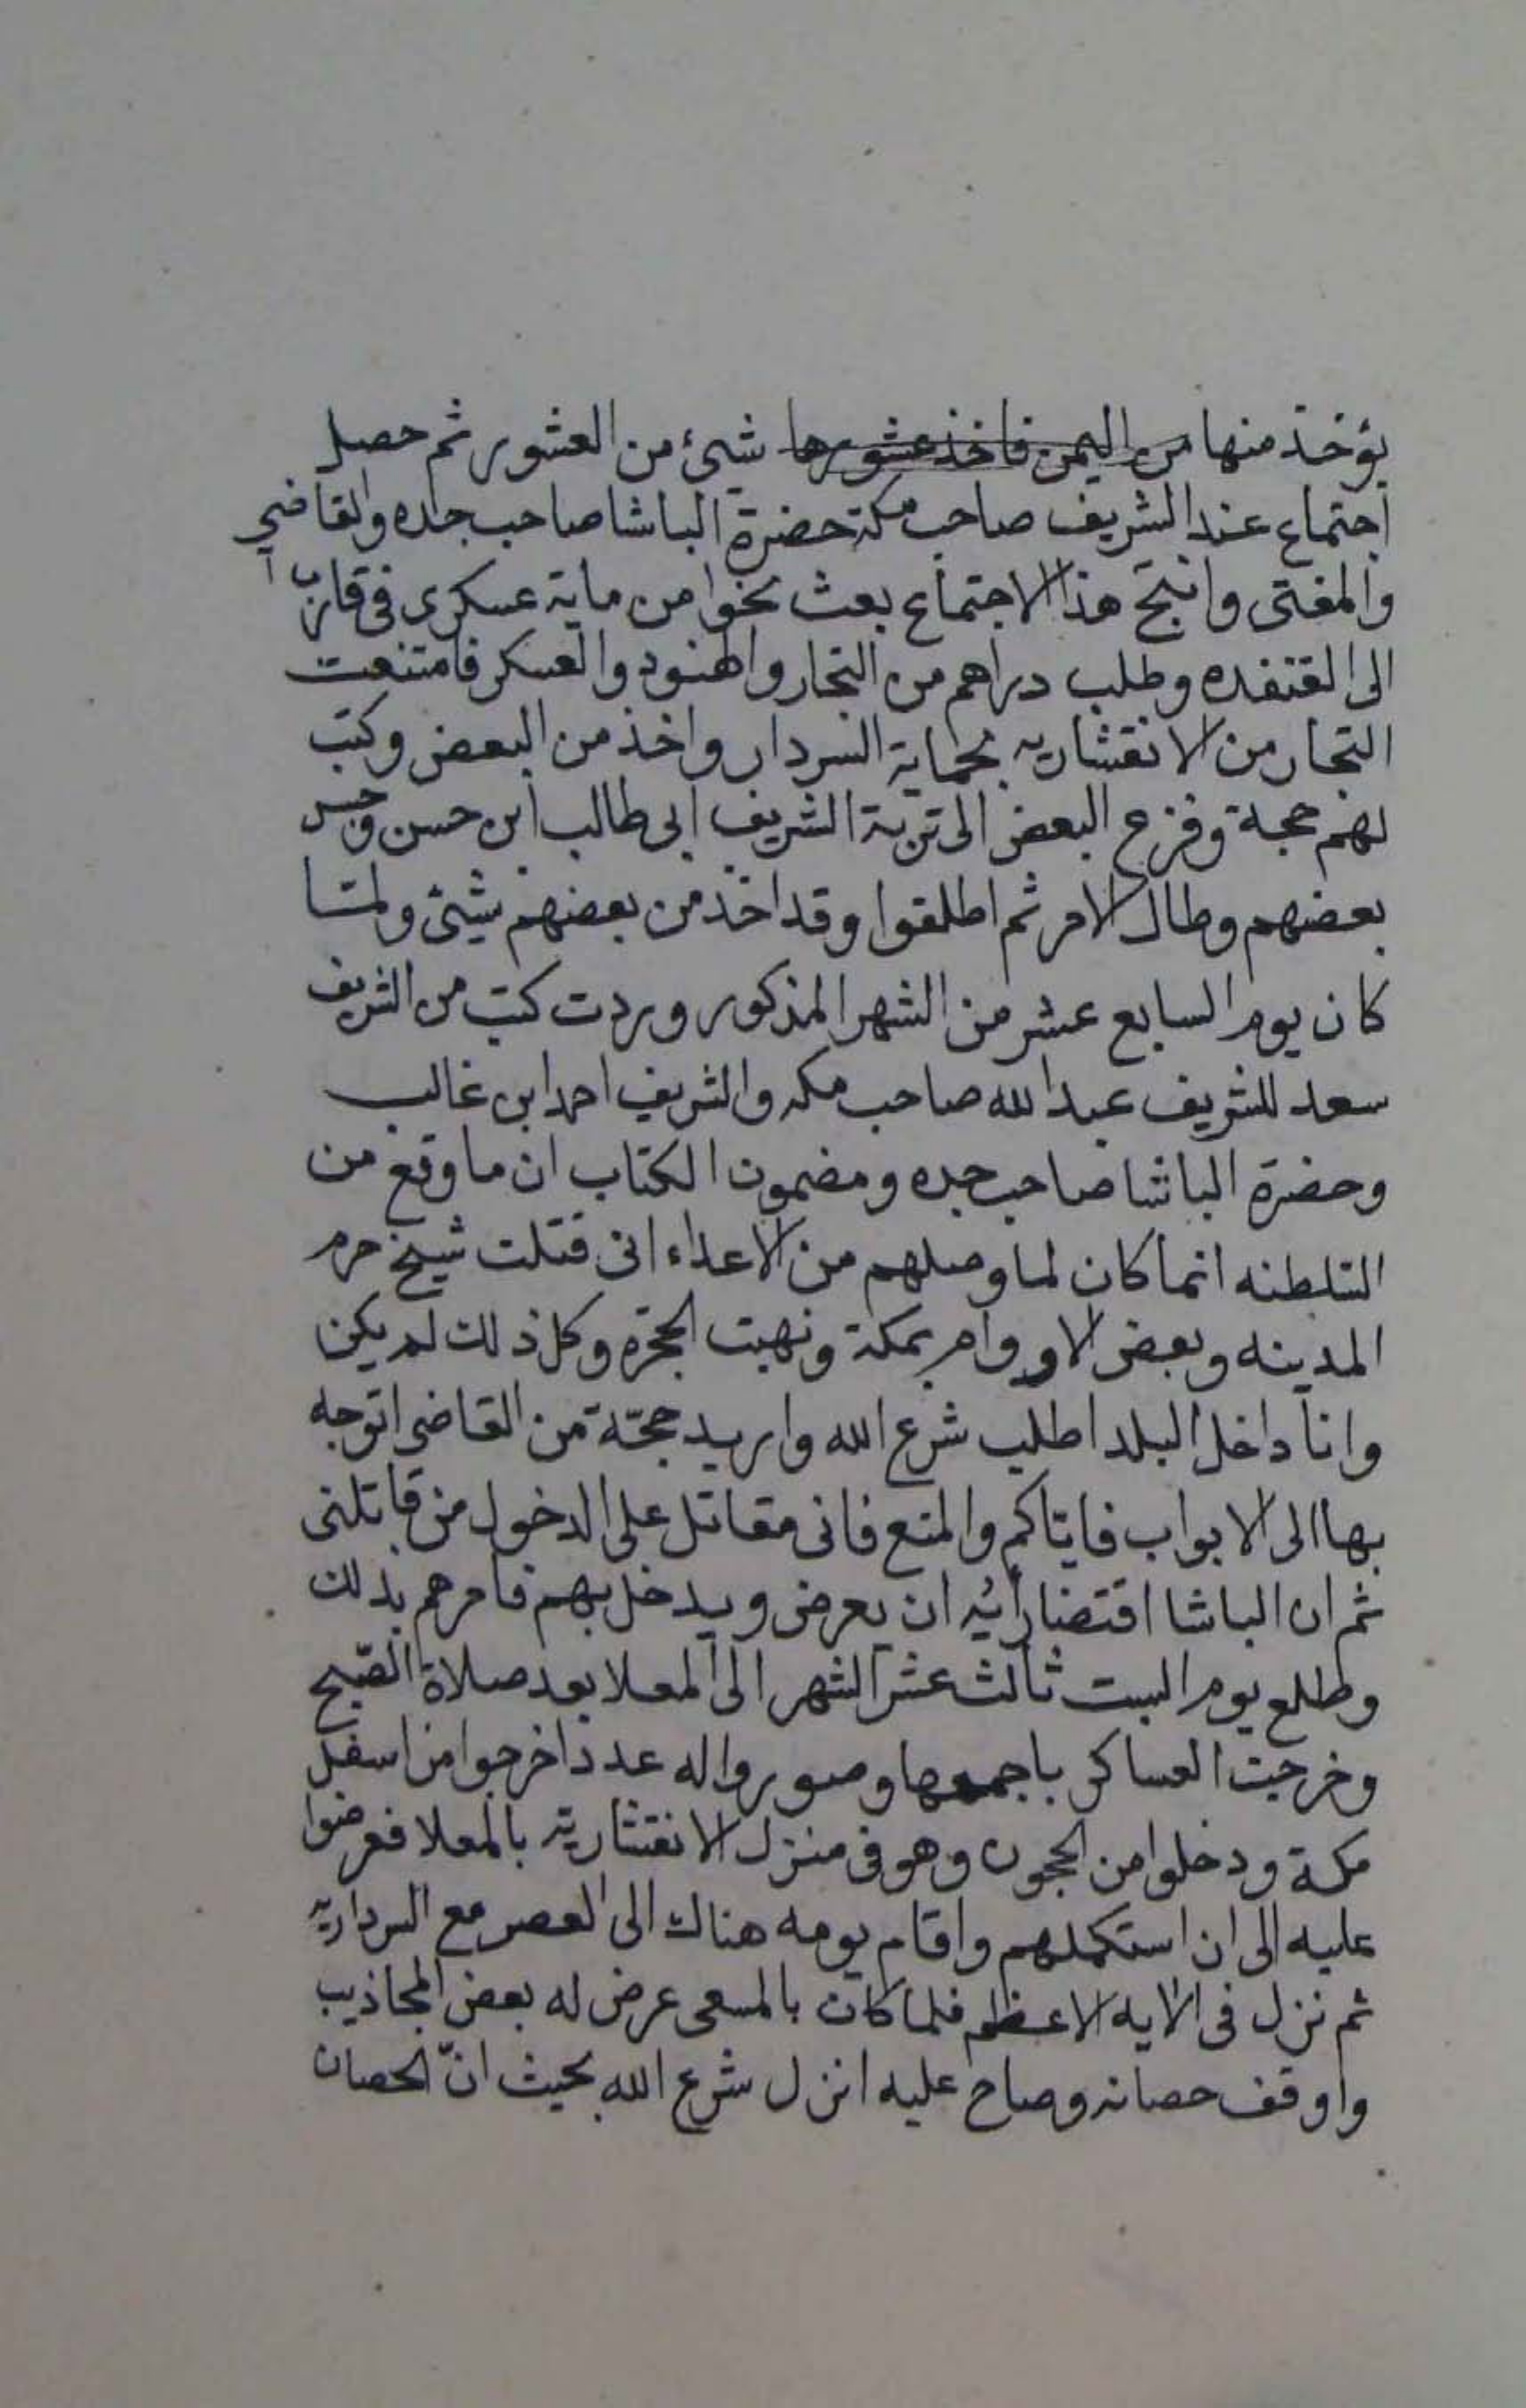 يؤخذ منها من اليمن فاخذ عشورها شيئ من العشور ثم حصل
اجتماع عند الشريف صاحب مكة حضرة الباشا صاحب جده والقاضي
والمفتى وانتج هذا الاجتماع بعث نحوا من ماية عسكرى فى
الى القنفده وطلب دراهم من التجار والهنود والعسكر فامتنعت
التجار من الانقشاريه بحماية السردار واخذ من البعض وكتب
لهم حجة وفزع البعض الى تربة الشريف ابى طالب ابن حسن وحبس
بعضهم وطال الامر ثم اطلقوا وقد اخذ من بعضهم شيئ ولمتا
كان يوم السابع عشر من الشهر المذكور وردت كتب من الشريف
سعد للشريف عبد الله صاحب مكه والشريف احمد ابن غالب
وحضرة الباشا صاحب جده ومضمون الكتاب ان ما وقع من
السلطنه انما كان لما وصلهم من الاعداء انى قتلت شيخ حرم
المدينه وبعض الاوروام بمكة ونهبت الحجرة وكل ذلك لم يكن
وانا داخل البلد اطلب شرع الله واريد حجّة من القاضى اتوجه
بها الى الابواب فاياكم والمنع فانى مقاتل على الدخول من قاتلنى
ثم ان الباشا اقتضا رأيه ان يعرض ويدخل بهم فامرهم بذلك
وطلع يوم السبت ثالث عشر الشهر الى المعلا بعد صلاة الصّبح
وخرجت العساكر باجمعها وصوروا له عددا خرجوا من اسفل
مكة ودخلوا من الحجون وهو فى منزل الانقشارية بالمعلا فعرضوا
عليه الى ان استكملهم واقام يومه هناك الى العصر مع السرداريه
ثم نزل فى الالايه الاعظم فلما كان بالمسعى عرض له بعض المجاذيب
واوقف حصانه وصاح عليه انزل شرع الله بحيث انّ الحصان